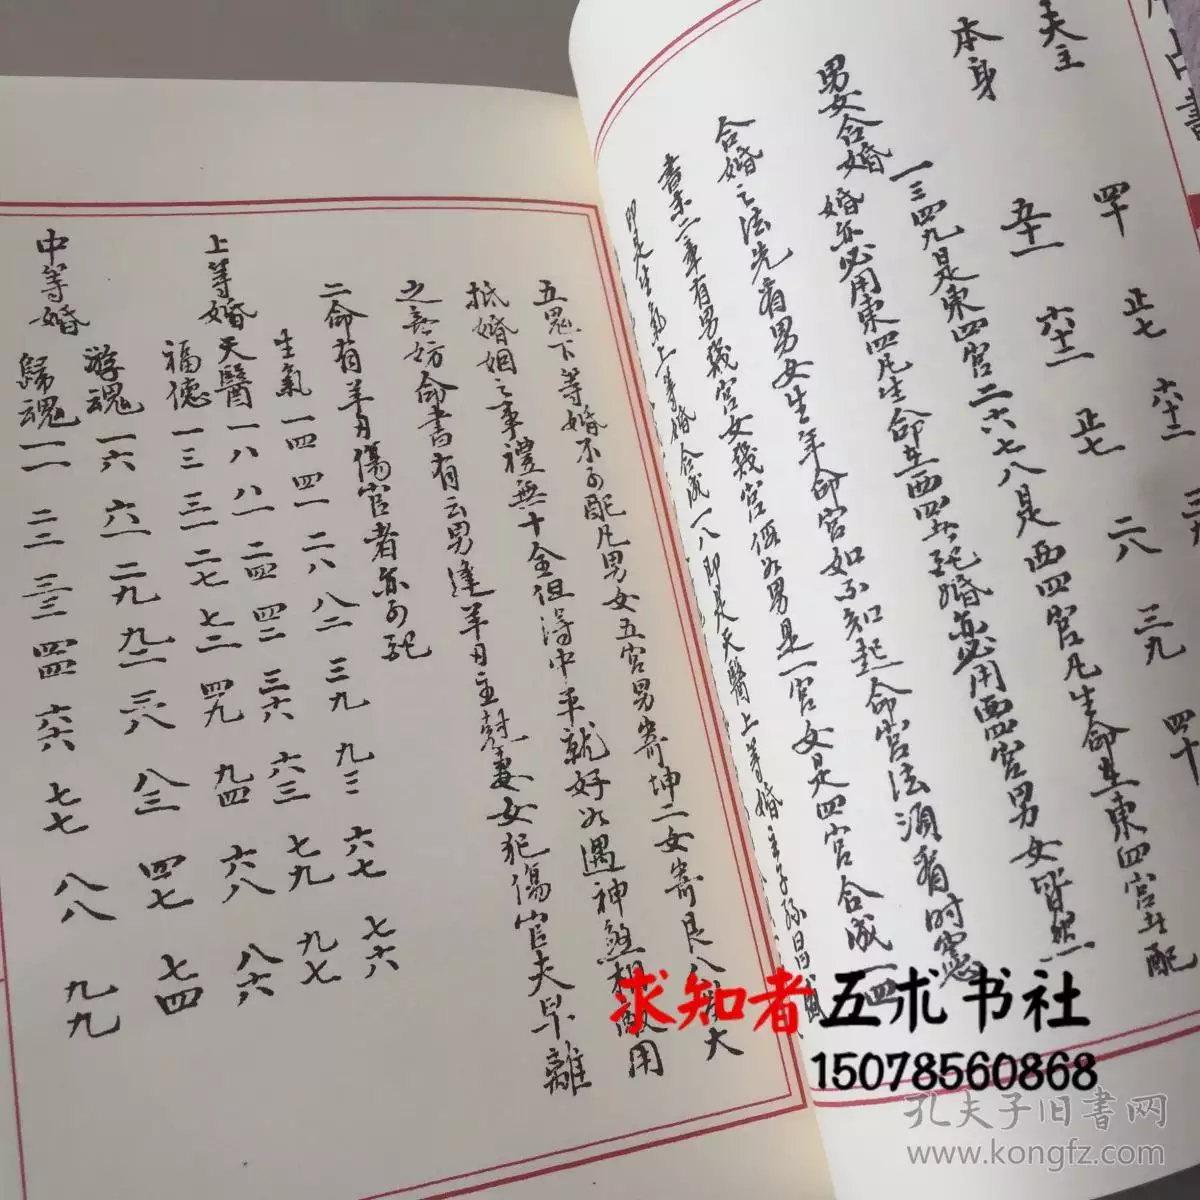 夫主
四十 正七 六十二 三九
本身
五十一 六十二 正七 二八 三九 四十
男女合婚
一三四九是東四宮二六七八是西四宮凡生命在東四宮者配
婚亦必用東四凡生命在西四者配婚亦必用西四宮男女皆然
合婚之法先有男女生年命宮如不知起命宮法須看時憲
書末二章有男幾宮女幾宮假如男是一宮女是四宮合成一四
即是生氣上等婚合成一八即是天醫上等婚
五鬼下等婚不可配凡男女五宮男寄坤二女寄艮八
大
抵婚姻之事禮無十全但得中平就好如遇神煞相
用
之無妨命書有云男逢羊刃主尅妻女犯傷官夫早離
二命有羊刃傷官者亦可配
生氣 一四 四一 二八 八二 三九 九三 六七 七六
上等婚 天醫 一八 八一 二四 四二 三六 六三 七九 九七
福德 一三 三一 二七 七二 四九 九四 六八 八六
中等婚
游魂 一六 六一 二九 九二 三八 八三 四七 七四
歸魂 一一 二二 三三 四四 六六 七七 八八 九九
占書
求知者 五术书社
15078560868
孔夫子旧书网
www.kongfz.com